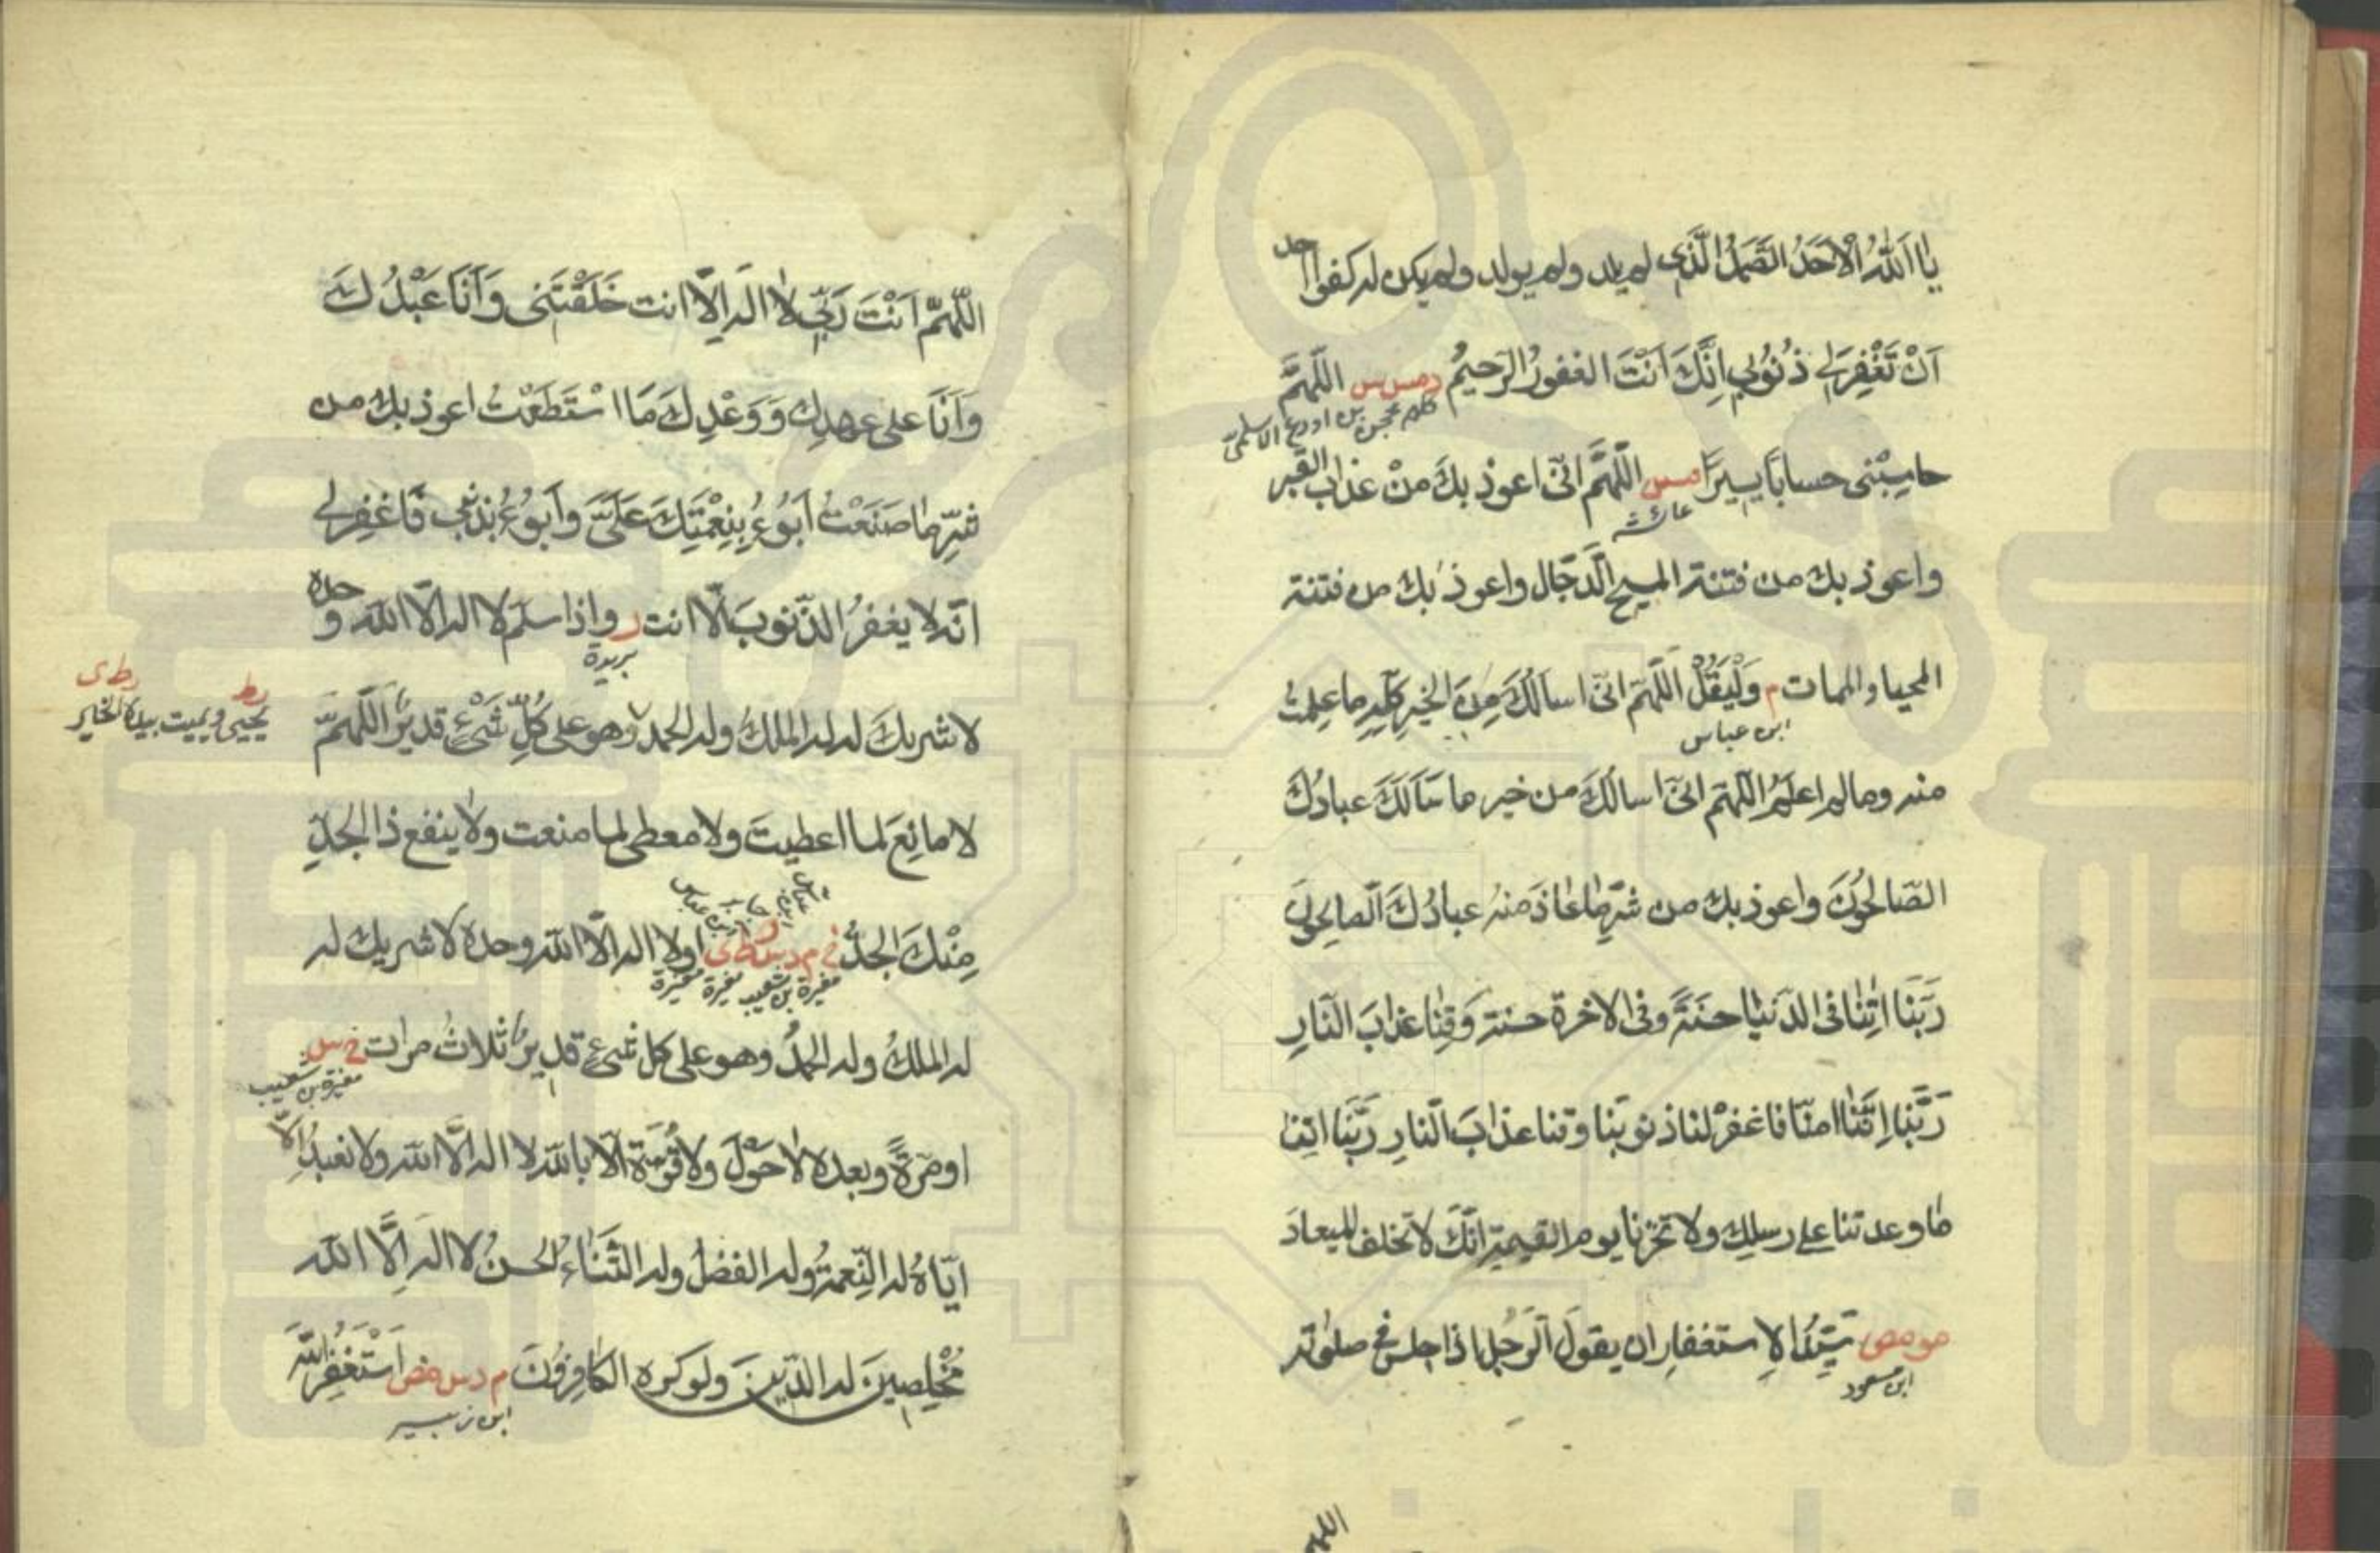 يا اَللّٰهُ الْاَحَدُ الصَّمَدُ الَّذِي لم يلد ولم يولد ولم يكن له كفوا احد
اَنْ تَغْفِرَلِي ذُنُوْبِي اِنَّكَ اَنْتَ الغفورُ الرَّحيمُ دمس س اللّهمَّ
محجن بن ادرع الاسلمىّ
حاسِبْنى حسابًا يسيرًا مس اللّهمَّ انّى اعوذ بكَ منْ عذاب القبر
عائشه
واعوذ بك من فتنة المسيح الدَّجّال واعوذ بك من فتنة
المحيا والممات م وَلْيَقُلْ اللّهمَّ انّى اسالُكَ مِنَ الخيرِ كلِّهِ ما علمتُ
ابن عباس
منه وما لم اعلم اللّهمَّ انّى اسالُكَ من خير ما سَاَلَكَ عبادُكَ
الصّالحُونَ واعوذ بك من شرِّ ما عَاذَ منهُ عبادُكَ الصالحون
رَبَّنَا اٰتِنَا فى الدّنيا حسَنَةً وفى الاخرة حسنة وَقِنَا عذابَ النّارِ
رَبَّنا اِنَّنَا امنّا فاغفرْ لنا ذنوبَنا وقنا عذابَ النّارِ رَبَّنَا اٰتنا
ما وعدتنا على رسلِك ولا تخزنا يوم القيمة اِنَّكَ لا تخلف الميعادَ
مو مص سَيِّدُ الاِستغفارِ ان يقولَ الرَّجُلُ اذا جلس فى صلٰوته
ابن مسعود
اللهم
اللّهمَّ اَنْتَ رَبِّي لا اله اِلّا انت خَلَقْتَنى وَاَنَا عَبْدُكَ
وَاَنَا على عهدِك وَوَعْدِكَ مَا اسْتَطَعْتُ اعوذ بك من
شرِّ ما صَنَعْتُ اَبُوْءُ بِنِعْمَتِكَ عَلَىَّ وَاَبُوْءُ بذنبي فَاغفِرلي
انّه لا يغفرُ الذّنوبَ الّا انت ر واذا سلم لا اله الّا الله وحده
بريدة
لا شريكَ له له الملكُ وله الحمد وهو على كُلِّ شَيْءٍ قديرٌ اَللّهمَّ
رط رط ى
يحيى ويميت بيده الخير
لا مانِعَ لما اعطيتَ ولا معطى لما منعت ولا ينفع ذا الجدِّ
جابر ابن عباس
مِنْكَ الجدُّ خ م د س ر ط ى اولا اله الّا الله وحده لا شريك له
مغيرة بن شعيب مغيرة مغيرة
له الملكُ وله الحمدُ وهو على كل شيءٍ قديرٌ ثلاثُ مرات خ س
مغيرة بن شعيب
اومرّةً وبعده لا حَوْلَ ولا قُوّة اِلّا بالله لا اله الّا الله ولا نعبدُ اِلّا
ايّاهُ له النِّعمةُ وله الفضلُ وله الثَّناءُ الحسنُ لا اله اِلَّا الله
مُخْلِصِينَ له الدّينَ ولو كره الكافِرُونَ م د س مص اَسْتَغْفِرُ اللهَ
ابن زبير